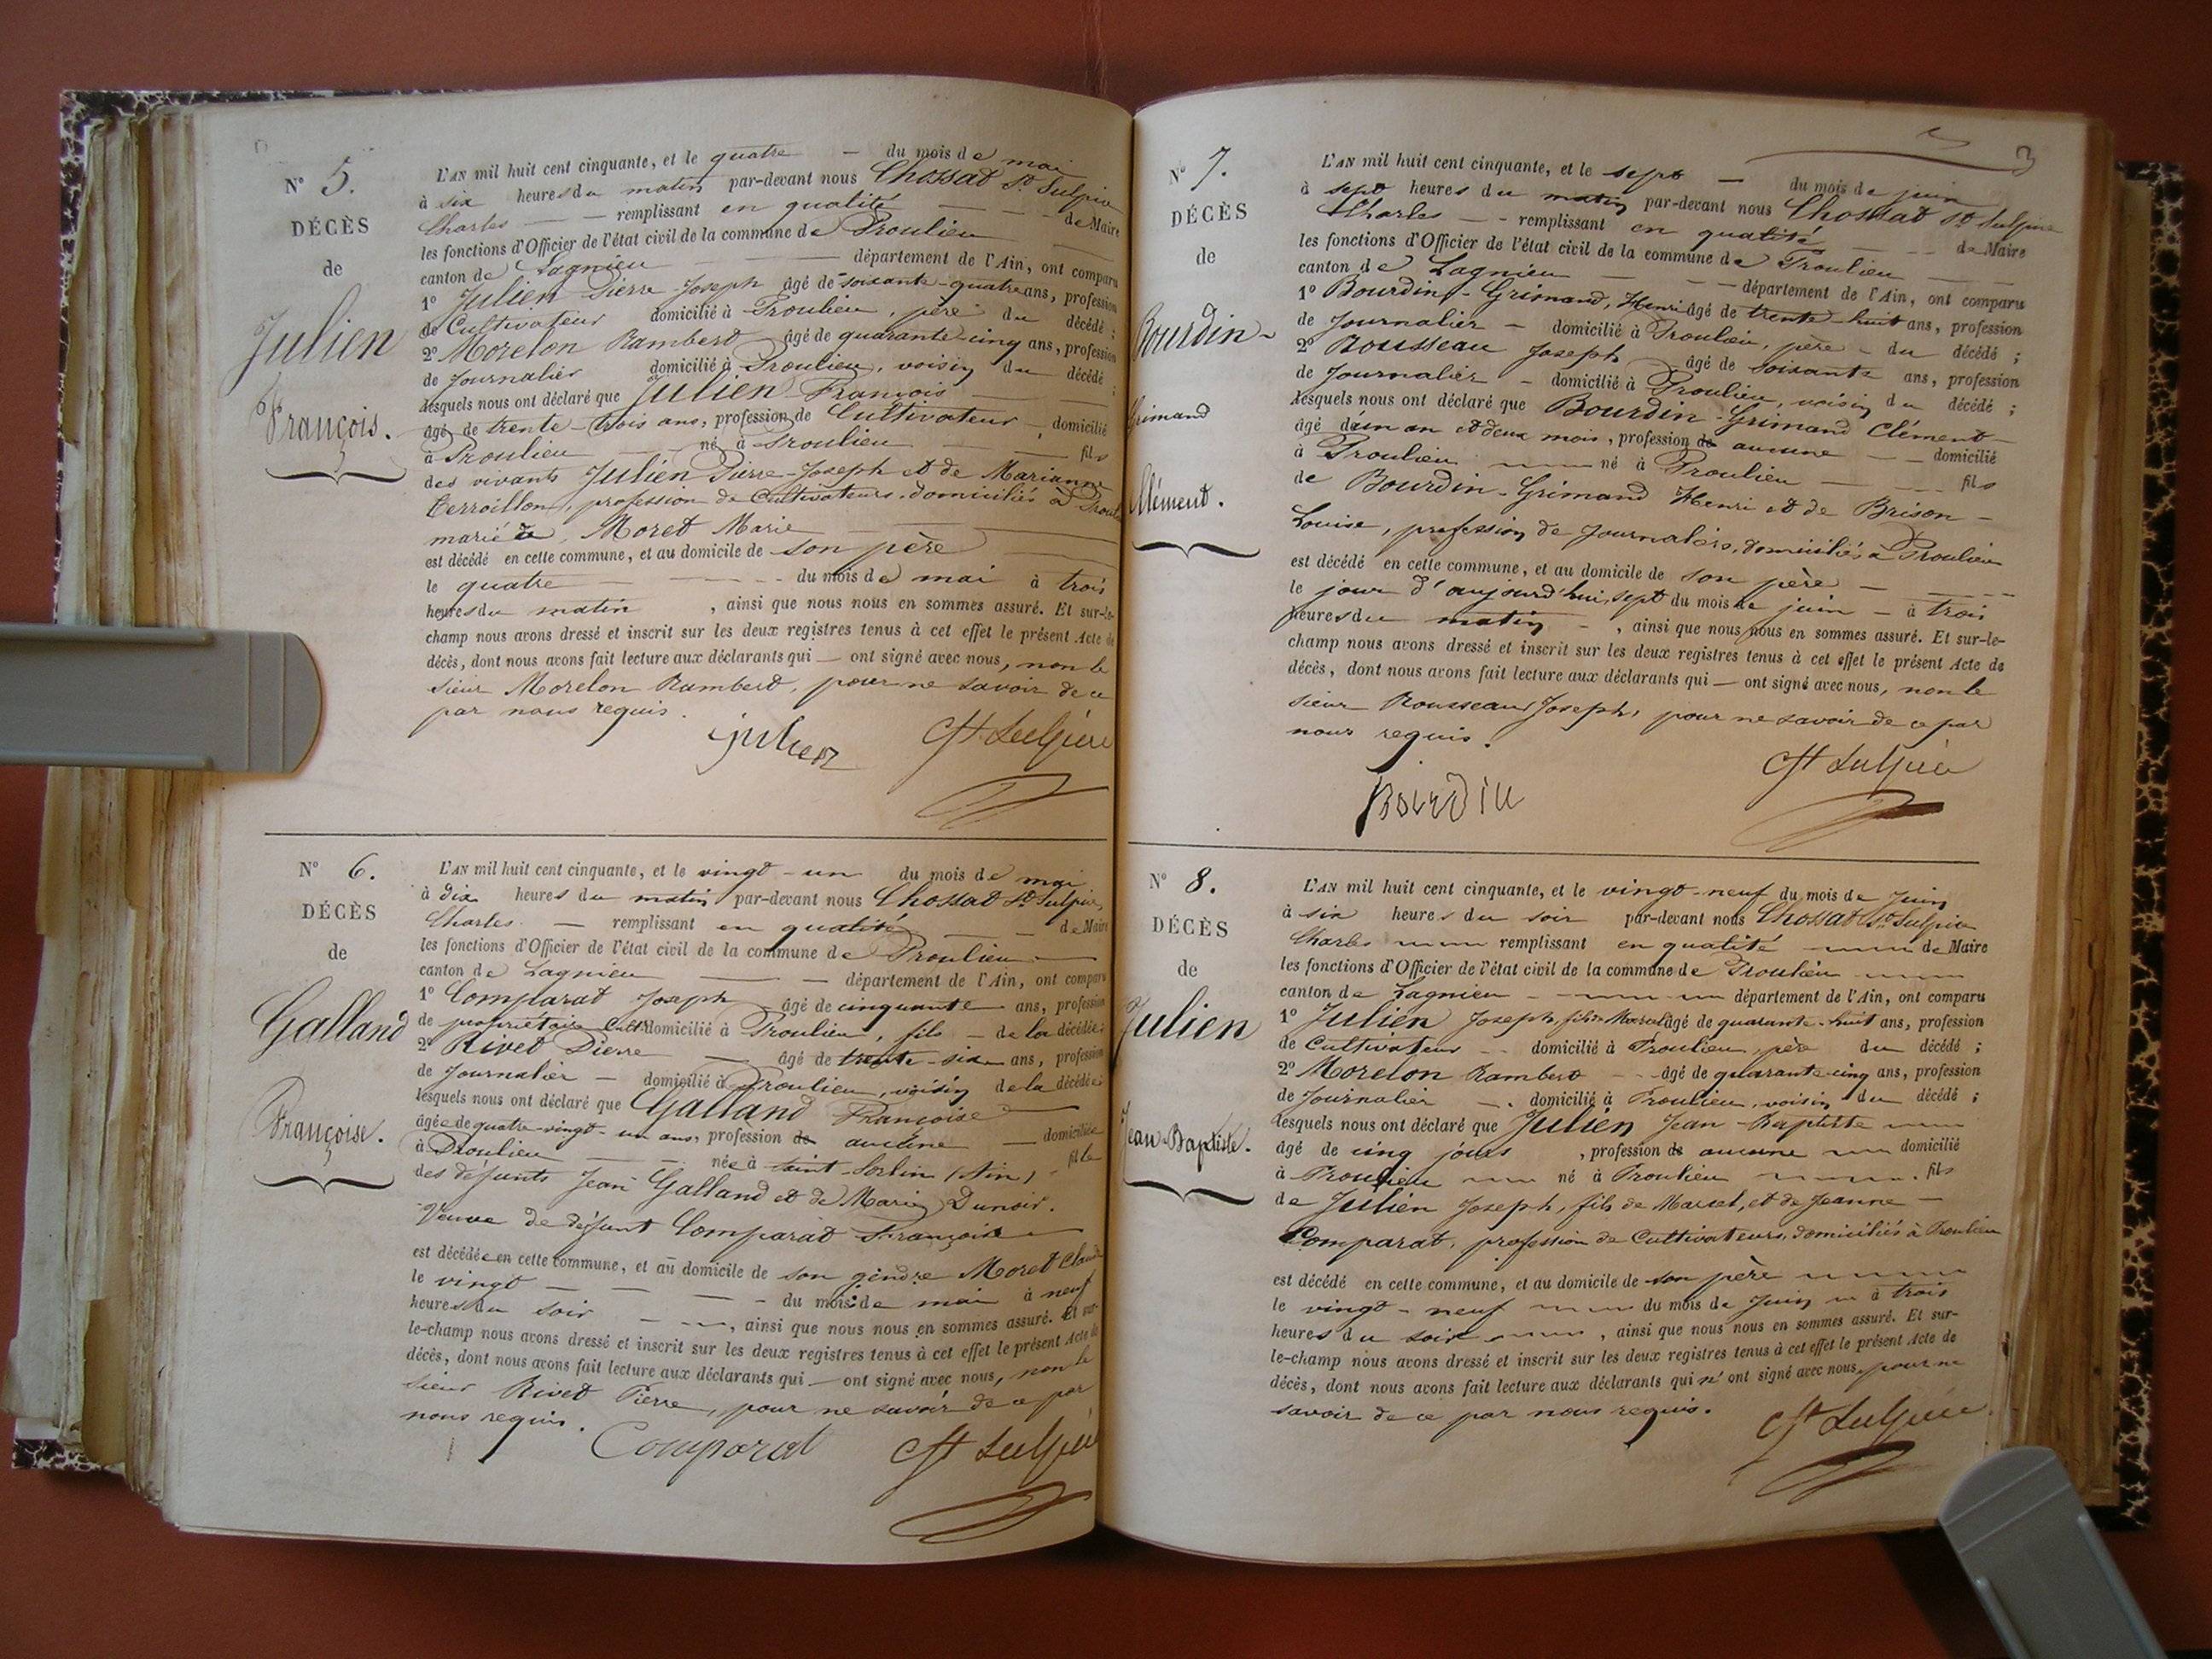 N° 5.
DÉCÈS
de
Julien
François.
L'AN mil huit cent cinquante, et le quatre — du mois de mai
à six heures du matin par-devant nous Chossat St Sulpice
Charles — — remplissant en qualité — — — de Maire
les fonctions d'Officier de l'état civil de la commune de Proulieu —
canton de Lagnieu — — département de l'Ain, ont comparu
1° Julien Pierre-Joseph âgé de soixante-quatre ans, profession
de Cultivateur domicilié à Proulieu, père du décédé ;
2° Morelon Rambert âgé de quarante-cinq ans, profession
de Journalier domicilié à Proulieu, voisin du décédé ;
lesquels nous ont déclaré que Julien François —
âgé de trente-trois ans, profession de Cultivateur -, domicilié
à Proulieu — né à Proulieu — fils
des vivants Julien Pierre-Joseph et de Marianne
Terroillon, profession de Cultivateurs, domiciliés à
marié à Moret Marie —
est décédé en cette commune, et au domicile de son père —
le quatre — — du mois de mai à trois
heures du matin , ainsi que nous nous en sommes assuré. Et sur-le-
champ nous avons dressé et inscrit sur les deux registres tenus à cet effet le présent Acte de
décès, dont nous avons fait lecture aux déclarants qui — ont signé avec nous, non le
sieur Morelon Rambert, pour ne savoir de ce
par nous requis.
julien CSt Sulpice
N° 6.
DÉCÈS
de
Galland
Françoise.
L'AN mil huit cent cinquante, et le vingt-un du mois de mai
à dix heures du matin par-devant nous Chossat St Sulpice,
Charles. — remplissant en qualité — — de Maire
les fonctions d'Officier de l'état civil de la commune de Proulieu —
canton de Lagnieu — — département de l'Ain, ont comparu
1° Comparat Joseph âgé de cinquante ans, profession
de propriétaire Cult domicilié à Proulieu, fils - de la décédée ;
2° Rivet Pierre — âgé de trente-six ans, profession
de Journalier — domicilié à Proulieu, voisin de la décédée ;
lesquels nous ont déclaré que Galland Françoise —
âgée de quatre-vingt-un ans, profession de aucune — domiciliée
à Proulieu — — née à Saint-Sorlin (Ain) - fille
des défunts Jean Galland et de Marie Dunoir.
Veuve de défunt Comparat Françoise —
est décédée en cette commune, et au domicile de son gendre Moret Claude
le vingt — — — du mois de mai à neuf
heures du soir — —, ainsi que nous nous en sommes assuré. Et sur-
le-champ nous avons dressé et inscrit sur les deux registres tenus à cet effet le présent Acte de
décès, dont nous avons fait lecture aux déclarants qui — ont signé avec nous, non le
sieur Rivet Pierre, pour ne savoir de ce par
nous requis.
Comparat CSt Sulpice
3
N° 7.
DÉCÈS
de
Bourdin-
Grimand
Clément.
L'AN mil huit cent cinquante, et le sept — du mois de juin
à sept heures du matin par-devant nous Chossat St Sulpice
Charles — - remplissant en qualité — — de Maire
les fonctions d'Officier de l'état civil de la commune de Proulieu —
canton de Lagnieu — — département de l'Ain, ont comparu
1° Bourdin-Grimand, Henri âgé de trente-huit ans, profession
de Journalier - domicilié à Proulieu, père - du décédé ;
2° Rousseau Joseph âgé de soixante ans, profession
de Journalier - domicilié à Proulieu, voisin du décédé ;
lesquels nous ont déclaré que Bourdin-Grimand Clément -
âgé d'un an et deux mois, profession de aucune — domicilié
à Proulieu — né à Proulieu — — fils
de Bourdin-Grimand Henri et de Brison -
Louise, profession de Journaliers, domiciliés à Proulieu
est décédé en cette commune, et au domicile de son père — —
le jour d'aujourd'hui, sept du mois de juin - à trois
heures du matin - , ainsi que nous nous en sommes assuré. Et sur-le-
champ nous avons dressé et inscrit sur les deux registres tenus à cet effet le présent Acte de
décès, dont nous avons fait lecture aux déclarants qui — ont signé avec nous, non le
sieur Rousseau Joseph, pour ne savoir de ce par
nous requis.
Bourdin CSt Sulpice
N° 8.
DÉCÈS
de
Julien
Jean-Baptiste.
L'AN mil huit cent cinquante, et le vingt-neuf du mois de Juin
à six heures du soir par-devant nous Chossat St Sulpice
Charles — remplissant en qualité — de Maire
les fonctions d'Officier de l'état civil de la commune de Proulieu —
canton de Lagnieu — — département de l'Ain, ont comparu
1° Julien Joseph, fils de Marcel âgé de quarante-huit ans, profession
de Cultivateur - domicilié à Proulieu, père du décédé ;
2° Morelon Rambert — âgé de quarante-cinq ans, profession
de Journalier - domicilié à Proulieu, voisin du décédé ;
lesquels nous ont déclaré que Julien Jean-Baptiste —
âgé de cinq jours , profession de aucune — domicilié
à Proulieu — né à Proulieu — fils
de Julien Joseph, fils de Marcel, et de Jeanne —
Comparat, profession de Cultivateurs, domiciliés à Proulieu
est décédé en cette commune, et au domicile de son père —
le vingt-neuf — du mois de Juin — à trois
heures du soir — , ainsi que nous nous en sommes assuré. Et sur-
le-champ nous avons dressé et inscrit sur les deux registres tenus à cet effet le présent Acte de
décès, dont nous avons fait lecture aux déclarants qui n'ont signé avec nous, pour ne
savoir de ce par nous requis.
CSt Sulpice